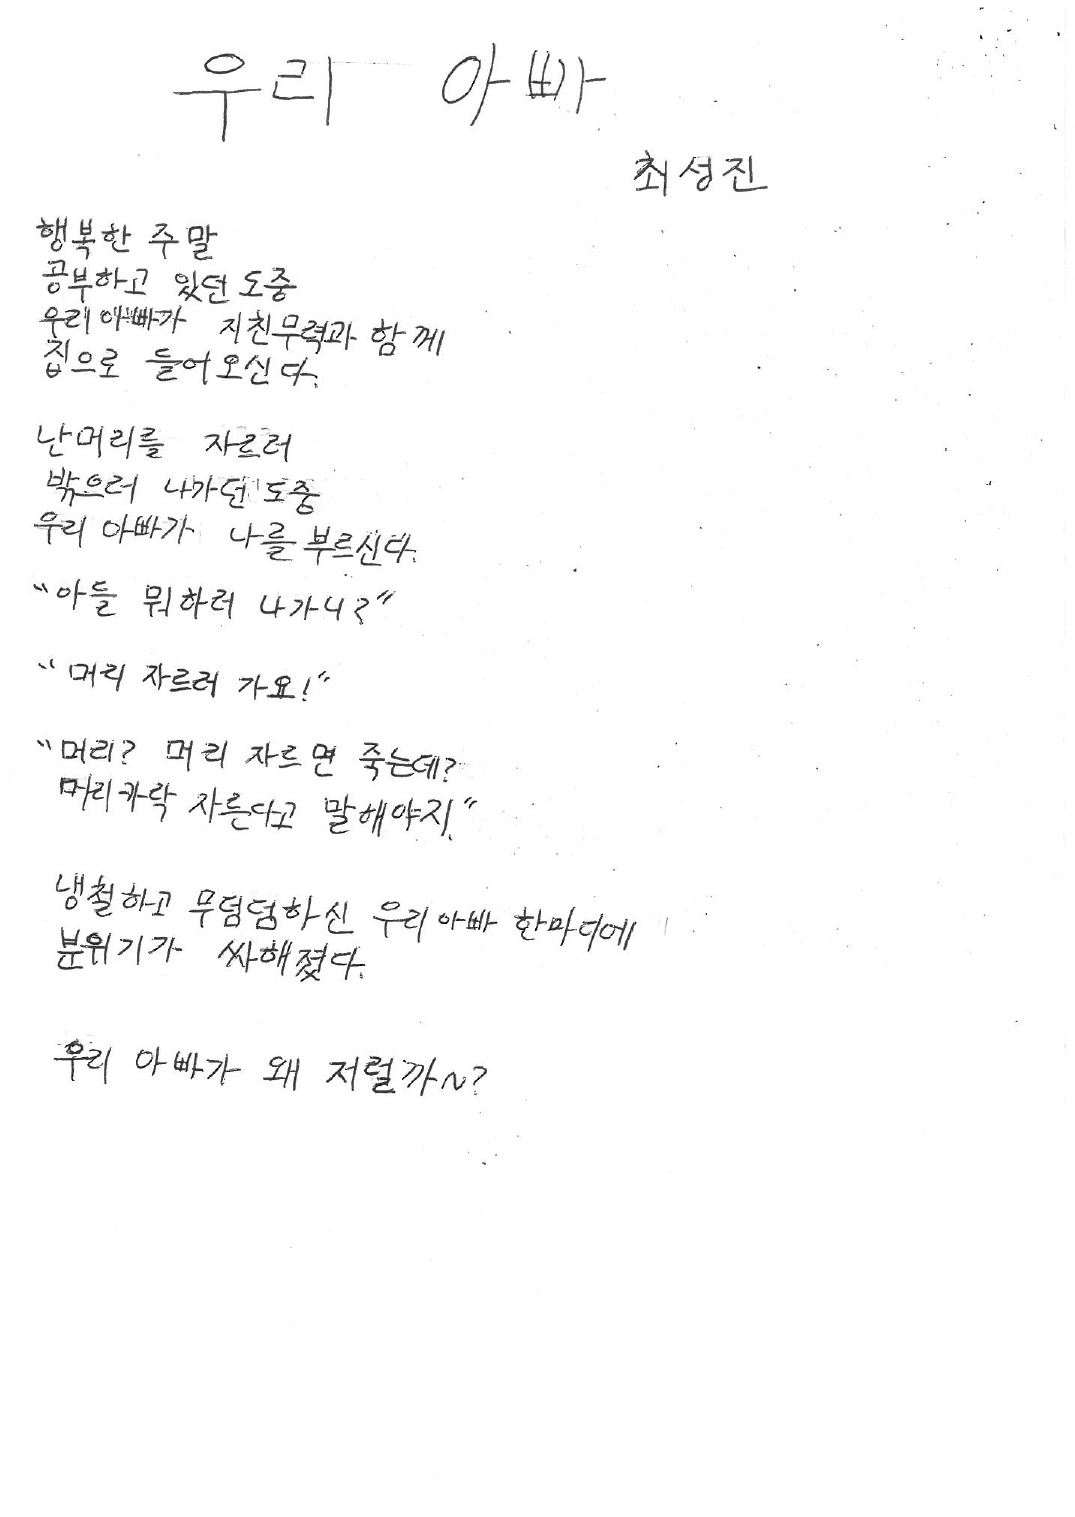 우리 아빠
최성진
행복한 주말
공부하고 있던 도중
우리 아빠가 지친무력과 함께
집으로 들어오신다.
난머리를 자르러
밖으러 나가던 도중
우리 아빠가 나를 부르신다.
"아들 뭐하러 나가니?"
"머리 자르러 가요!"
"머리? 머리 자르면 죽는데?
머리카락 자른다고 말해야지."
냉철하고 무덤덤하신 우리아빠 한마디에
분위기가 싸해졌다.
우리 아빠가 왜 저럴까~?